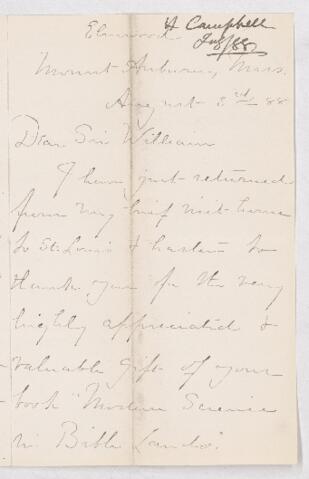 H Campbell
Elmwood
Mount Auburn, Mass.
August 3rd 88
Dear Sir William
I have just returned
from my brief visit home
to St. Louis & hasten to
thank you for the very
highly appreciated &
valuable gift of your
book "Modern Science
in Bible Lands".